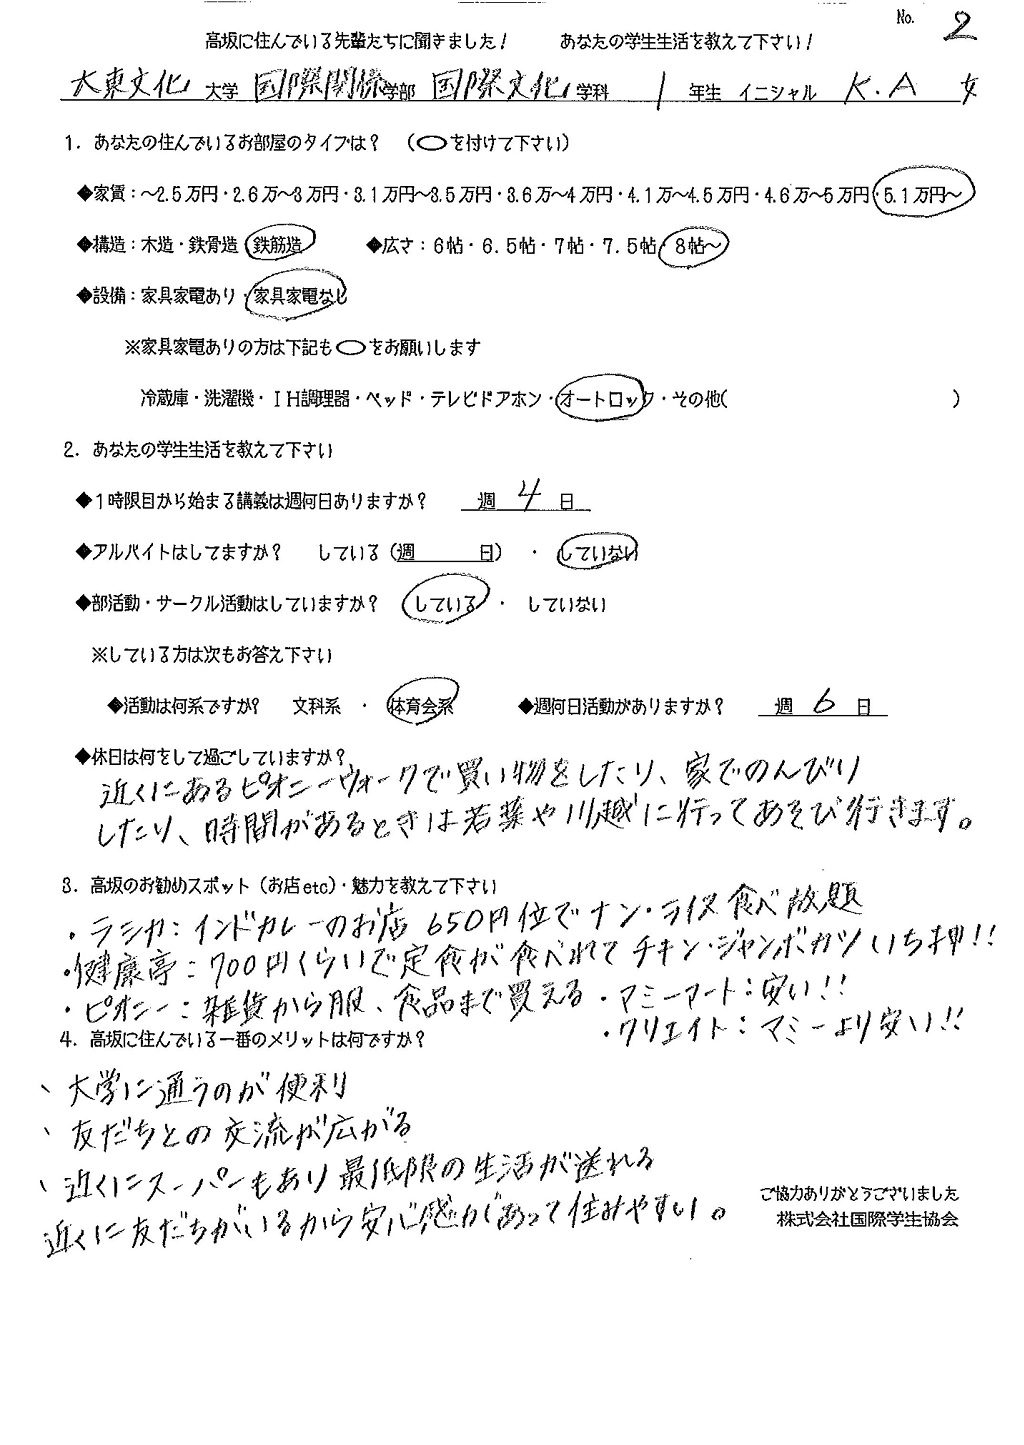 No. 2
高坂に住んでいる先輩たちに聞きました! あなたの学生生活を教えて下さい!
大東文化 大学 国際関係 学部 国際文化 学科 1 年生 イニシャル K.A 女
1. あなたの住んでいるお部屋のタイプは? (○を付けて下さい)
◆家賃:~2.5万円・2.6万~3万円・3.1万円~3.5万円・3.6万~4万円・4.1万~4.5万円・4.6万~5万円・5.1万円~
◆構造:木造・鉄骨造・鉄筋造 ◆広さ:6帖・6.5帖・7帖・7.5帖・8帖~
◆設備:家具家電あり・家具家電なし
※家具家電ありの方は下記も○をお願いします
冷蔵庫・洗濯機・IH調理器・ベッド・テレビドアホン・オートロック・その他( )
2. あなたの学生生活を教えて下さい
◆1時限目から始まる講義は週何日ありますか? 週 4 日
◆アルバイトはしてますか? している(週 日) ・ していない
◆部活動・サークル活動はしていますか? している ・ していない
※している方は次もお答え下さい
◆活動は何系ですか? 文科系 ・ 体育会系 ◆週何日活動がありますか? 週 6 日
◆休日は何をして過ごしていますか?
近くにあるピオニーウォークで買い物をしたり、家でのんびり
したり、時間があるときは若葉や川越に行ってあそび行きます。
3. 高坂のお勧めスポット(お店etc)・魅力を教えて下さい
・ラシカ:インドカレーのお店 650円位でナン・ライス食べ放題
・健康亭:700円くらいで定食が食べれてチキン・ジャンボカツいち押!!
・ピオニー:雑貨から服、食品まで買える ・マミーマート:安い!!
・クリエイト:マミーより安い!!
4. 高坂に住んでいる一番のメリットは何ですか?
、大学に通うのが便利
、友だちとの交流が広がる
、近くにスーパーもあり最低限の生活が送れる
近くに友だちがいるから安心感があって住みやすい。
ご協力ありがとうございました
株式会社国際学生協会